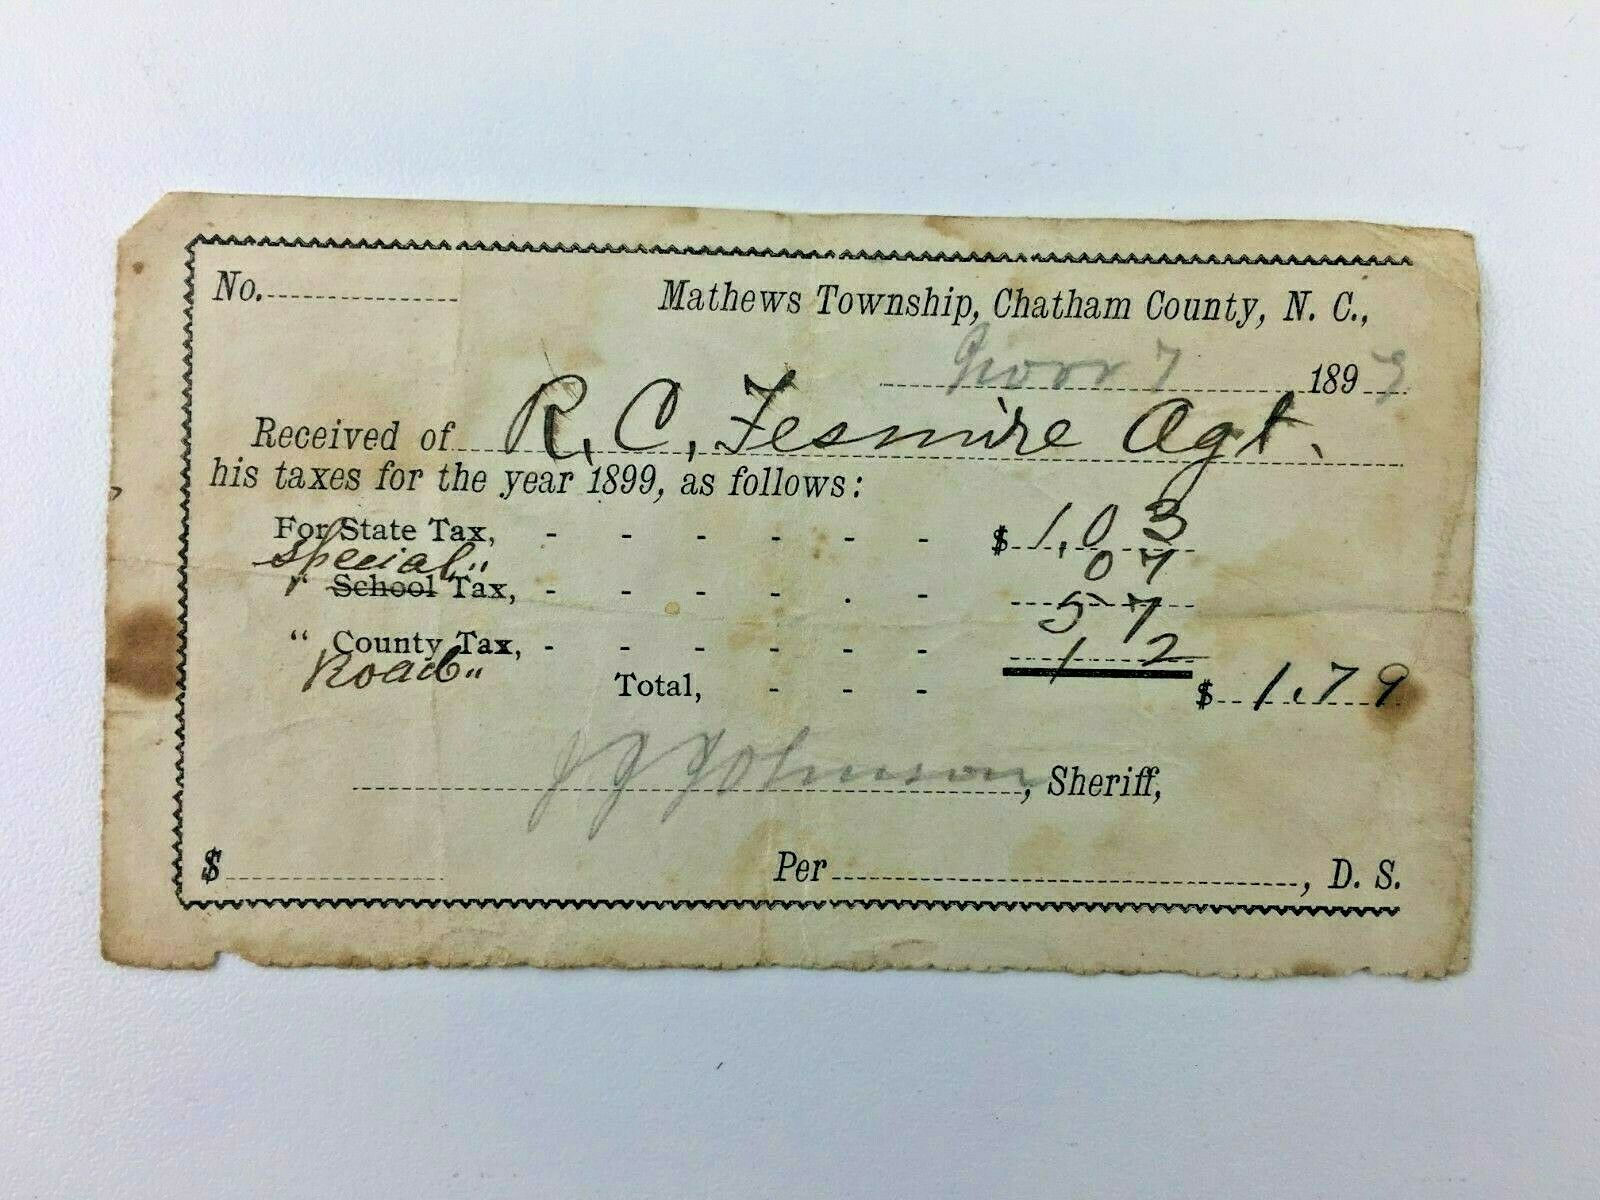 No.
Mathews Township, Chatham County, N. C.,
Novr 7 1899
Received of R. C. Fesmire Agt.
his taxes for the year 1899, as follows:
For State Tax, - - - - - - $ 1.03
special " 07
" School Tax, - - - - - -
" County Tax, - - - - - - 57
Road " 12
Total, - - - $ 1.79
Johnson, Sheriff,
$ Per , D. S.